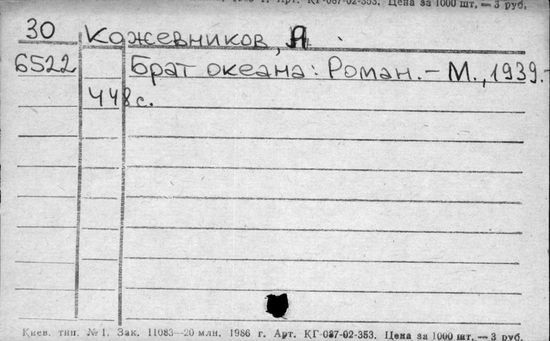 Арт. КГ-087-02-353. Цена за 1000 шт. — 3 руб.
30 Кожевников, А
6522 Брат океана: Роман. – М., 1939. –
448 с.
Киев. тип. № 1. Зак. 11083—20 млн. 1986 г. Арт. КГ-087-02-353. Цена за 1000 шт. — 3 руб.